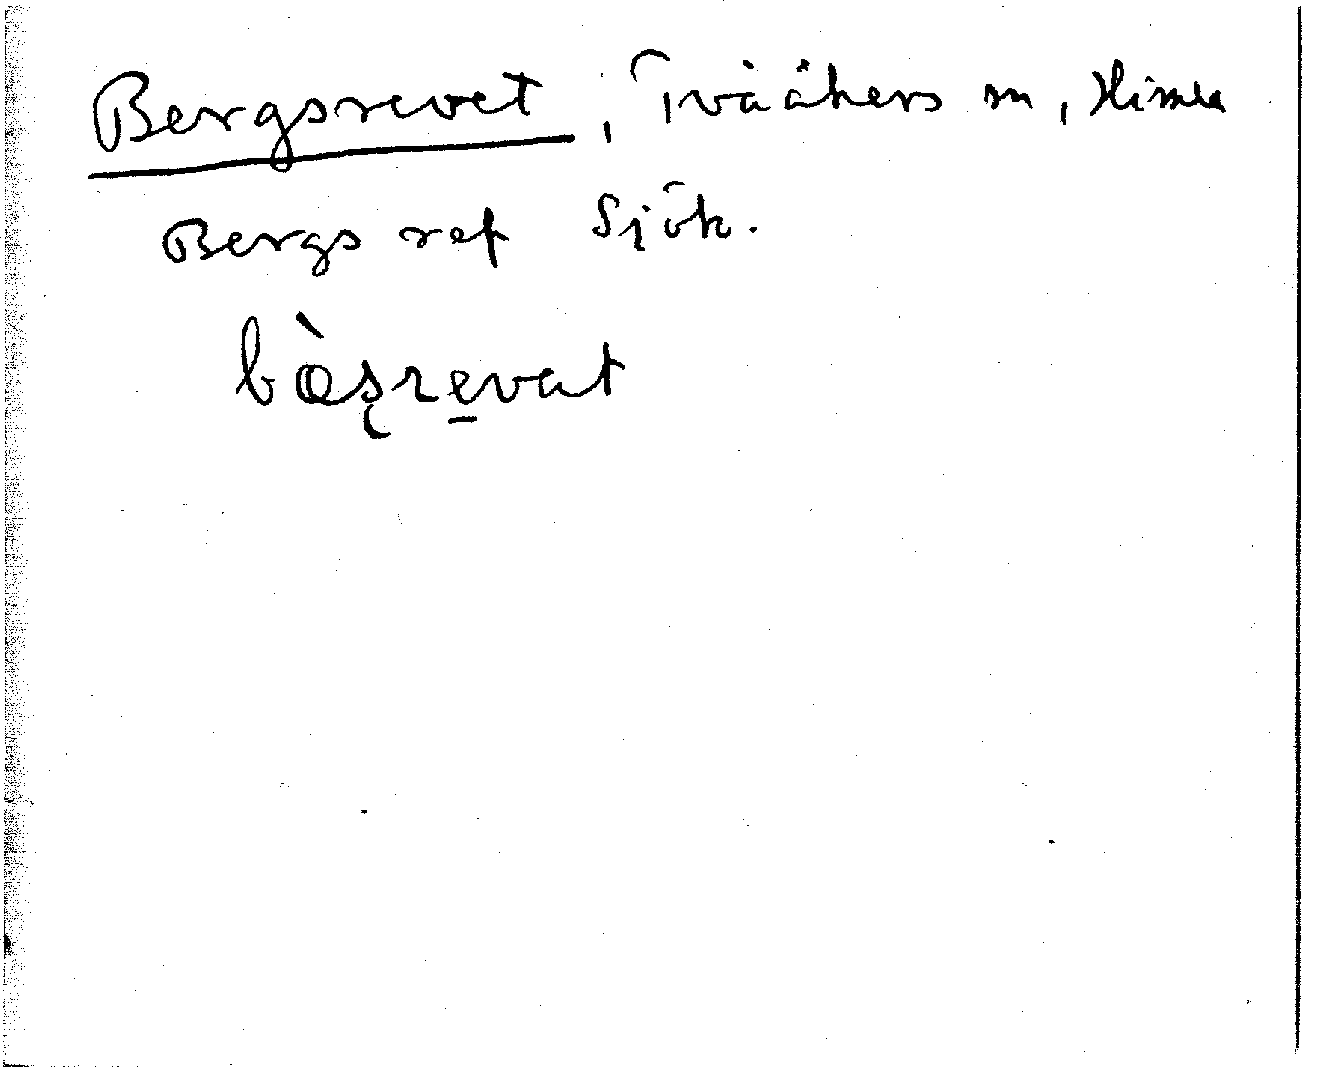 Bergsrevet, Tvååkers sn, Himle
Bergs ref Sjök.
bàșre̱vat